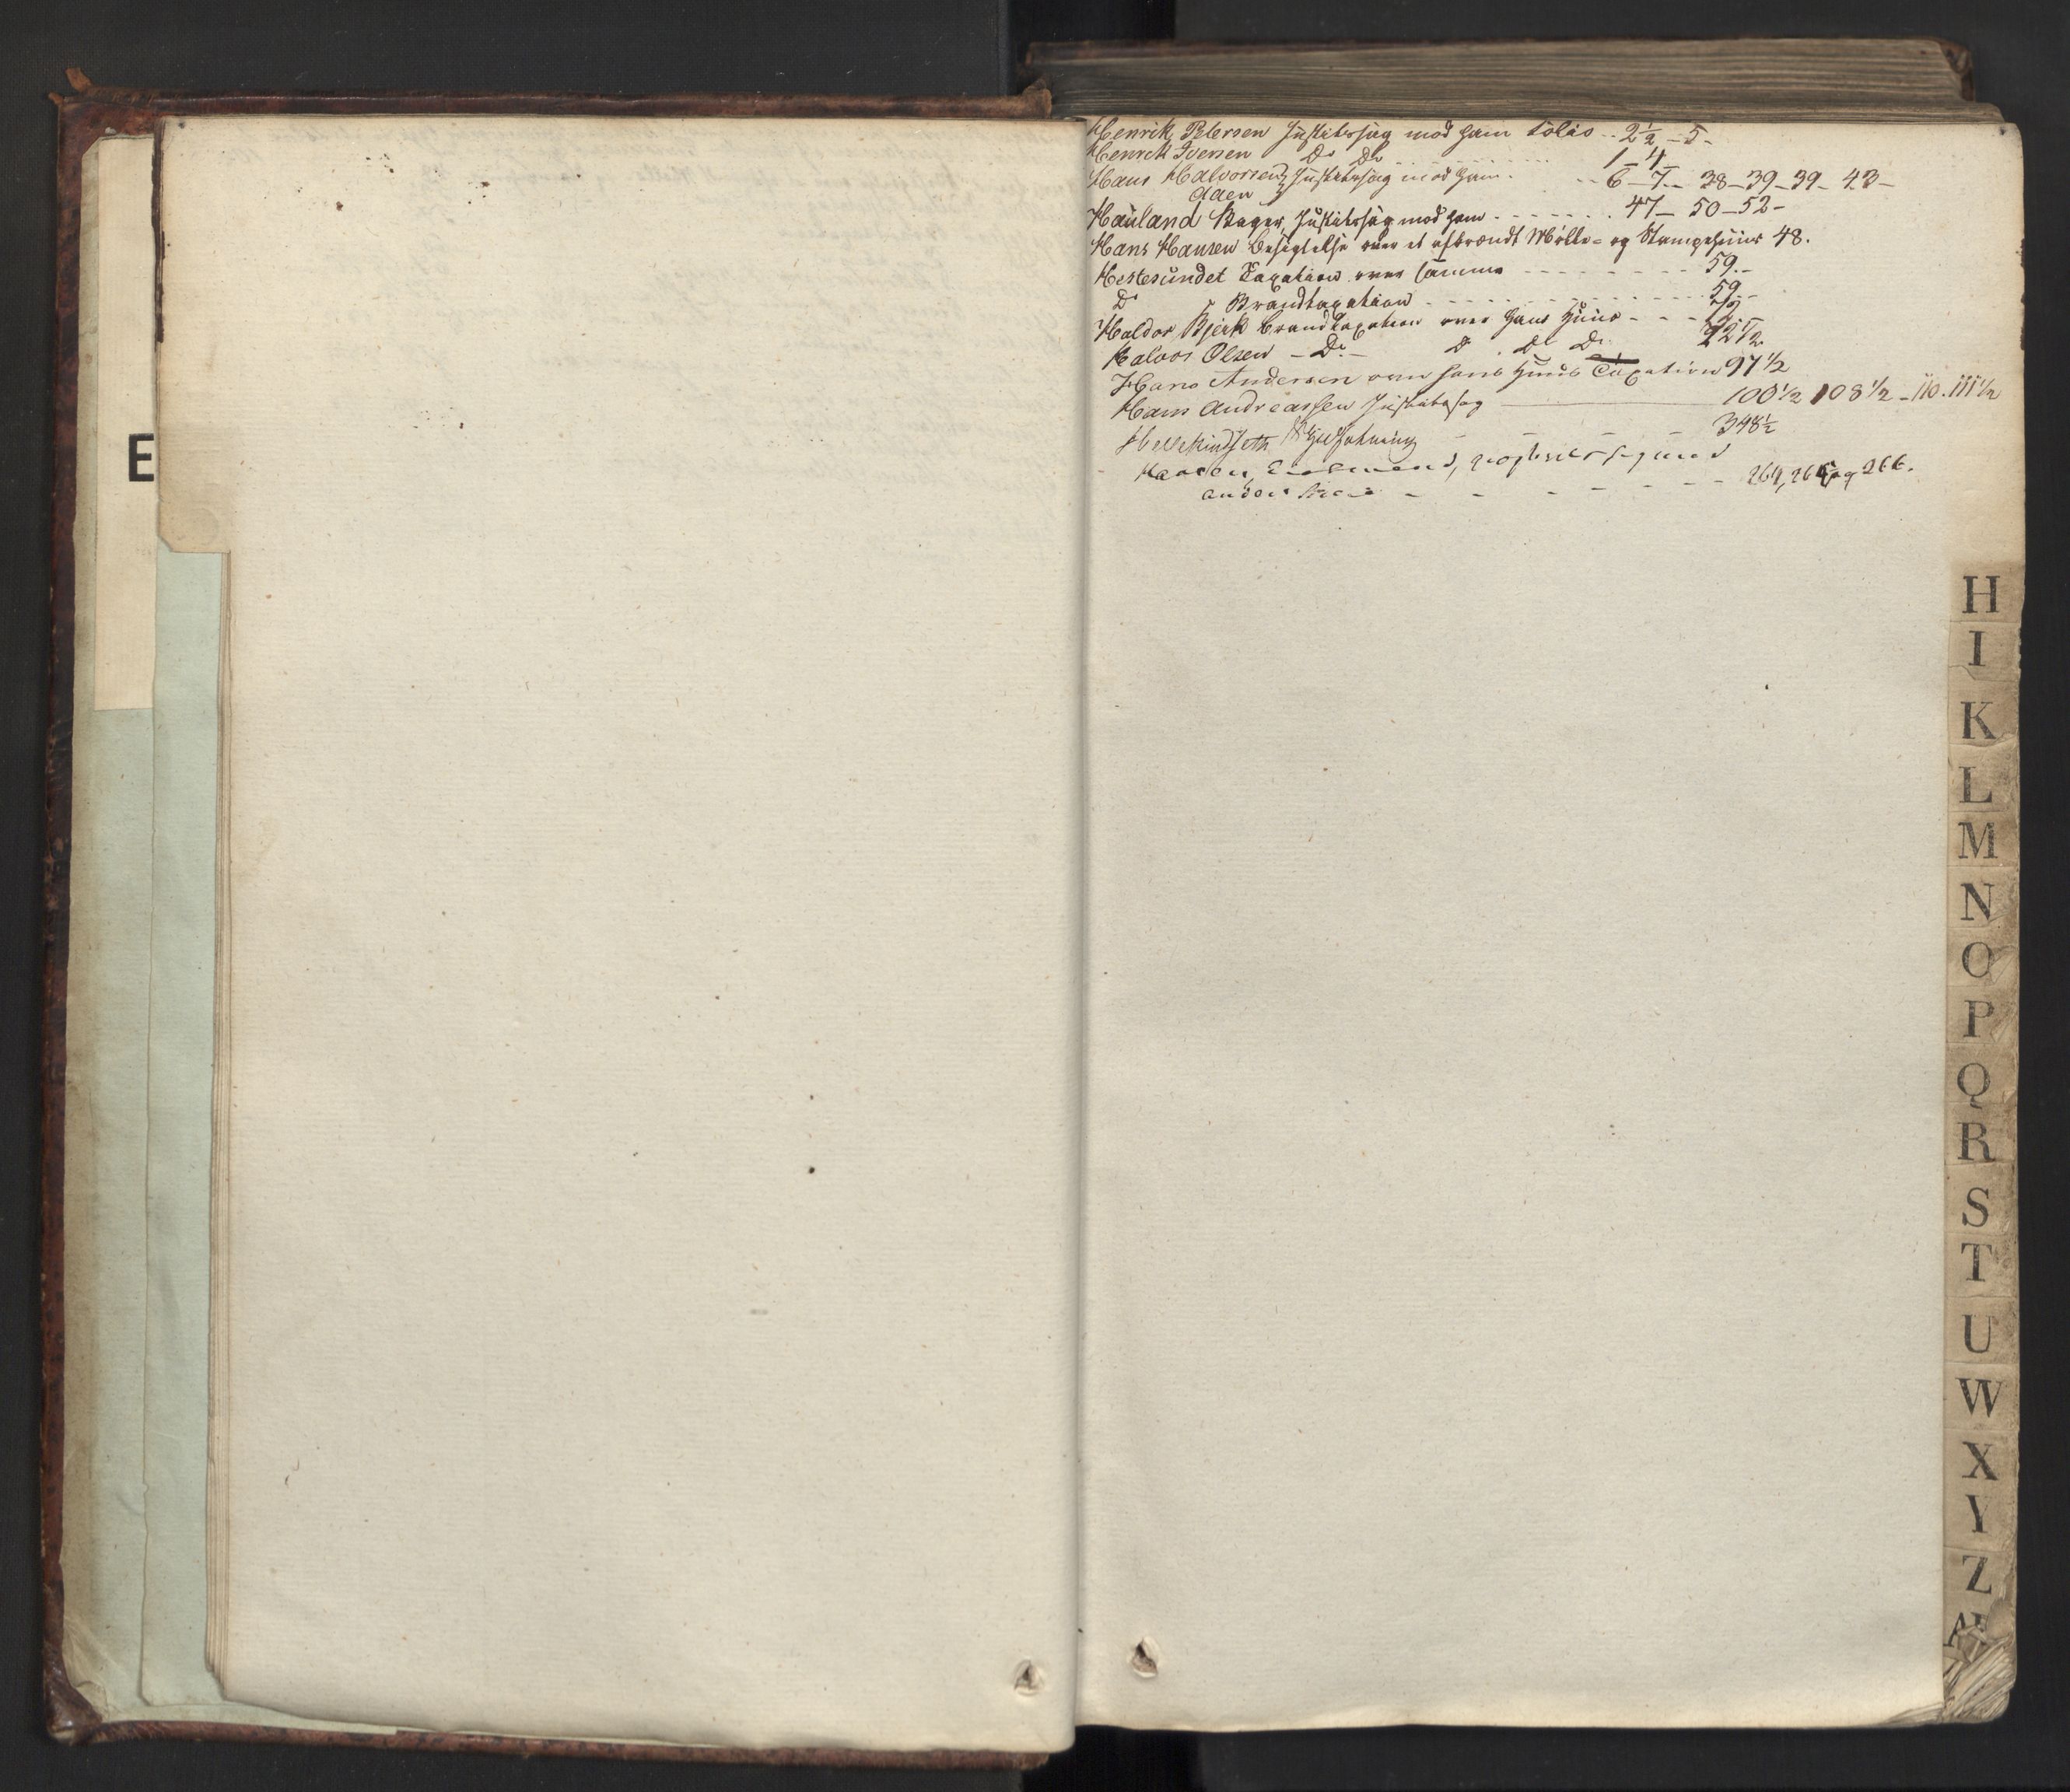 E
Henrik Petersen Justitssag mod ham Folio .. 2½ - 5 -
Henrik Iversen Do Do 1 - 4 -
Hans Halvorsen Justitssag mod ham. 6 - 7 - 38 - 39 - 39 - 43 -
Hauland Bager, Justitssag mod ham 47 - 50 - 52 -
Hans Hansen Besigtelse over et afbrændt Mølle- og Stampehuus 48.
Hestesundet Taxation over samme 59. -
Do Brandtaxation 59
Haldor Bjerk Brandtaxation over hans Huus
Halvor Olsen - Do - D. Do Do 92½
Hans Andersen over hans Huus Taxation 97½
Hans Andreassen Justitssag 100½ 108½ - 110. 111½
348½
264, 265 og 266.
H
I
K
L
M
N
O
P
Q
R
S
T
U
W
X
Y
Z
Æ